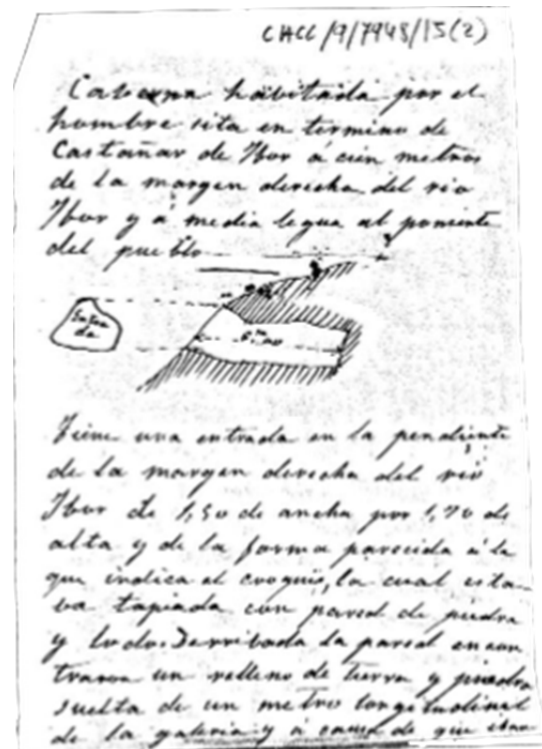 CACC/9/7948/15(2)
Caberna habitada por el
hombre sita en termino de
Castañar de Ibor á cien metros
de la margen derecha del rio
Ibor y á media legua al poniente
del pueblo
Entra
da
Tiene una entrada en la pendiente
de la margen derecha del rio
Ibor de 1,50 de ancha por 1,70 de
alta y de la forma parecida á la
que indica el croquis, la cual esta
ba tapiada con pared de piedra
y lodo. Derribada la pared encon
traron un relleno de tierra y piedra
suelta de un metro longitudinal
de la galeria y á causa de que